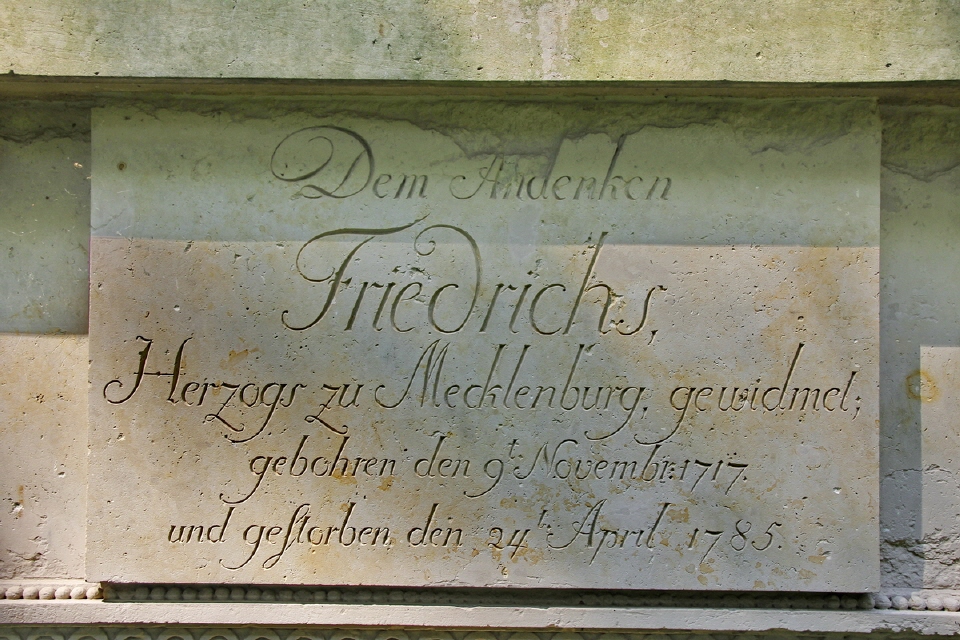 Dem Andenken
Friedrichs,
Herzogs zu Mecklenburg, gewidmet;
gebohren den 9t Novembr: 1717.
und geſtorben den 24t April 1785.